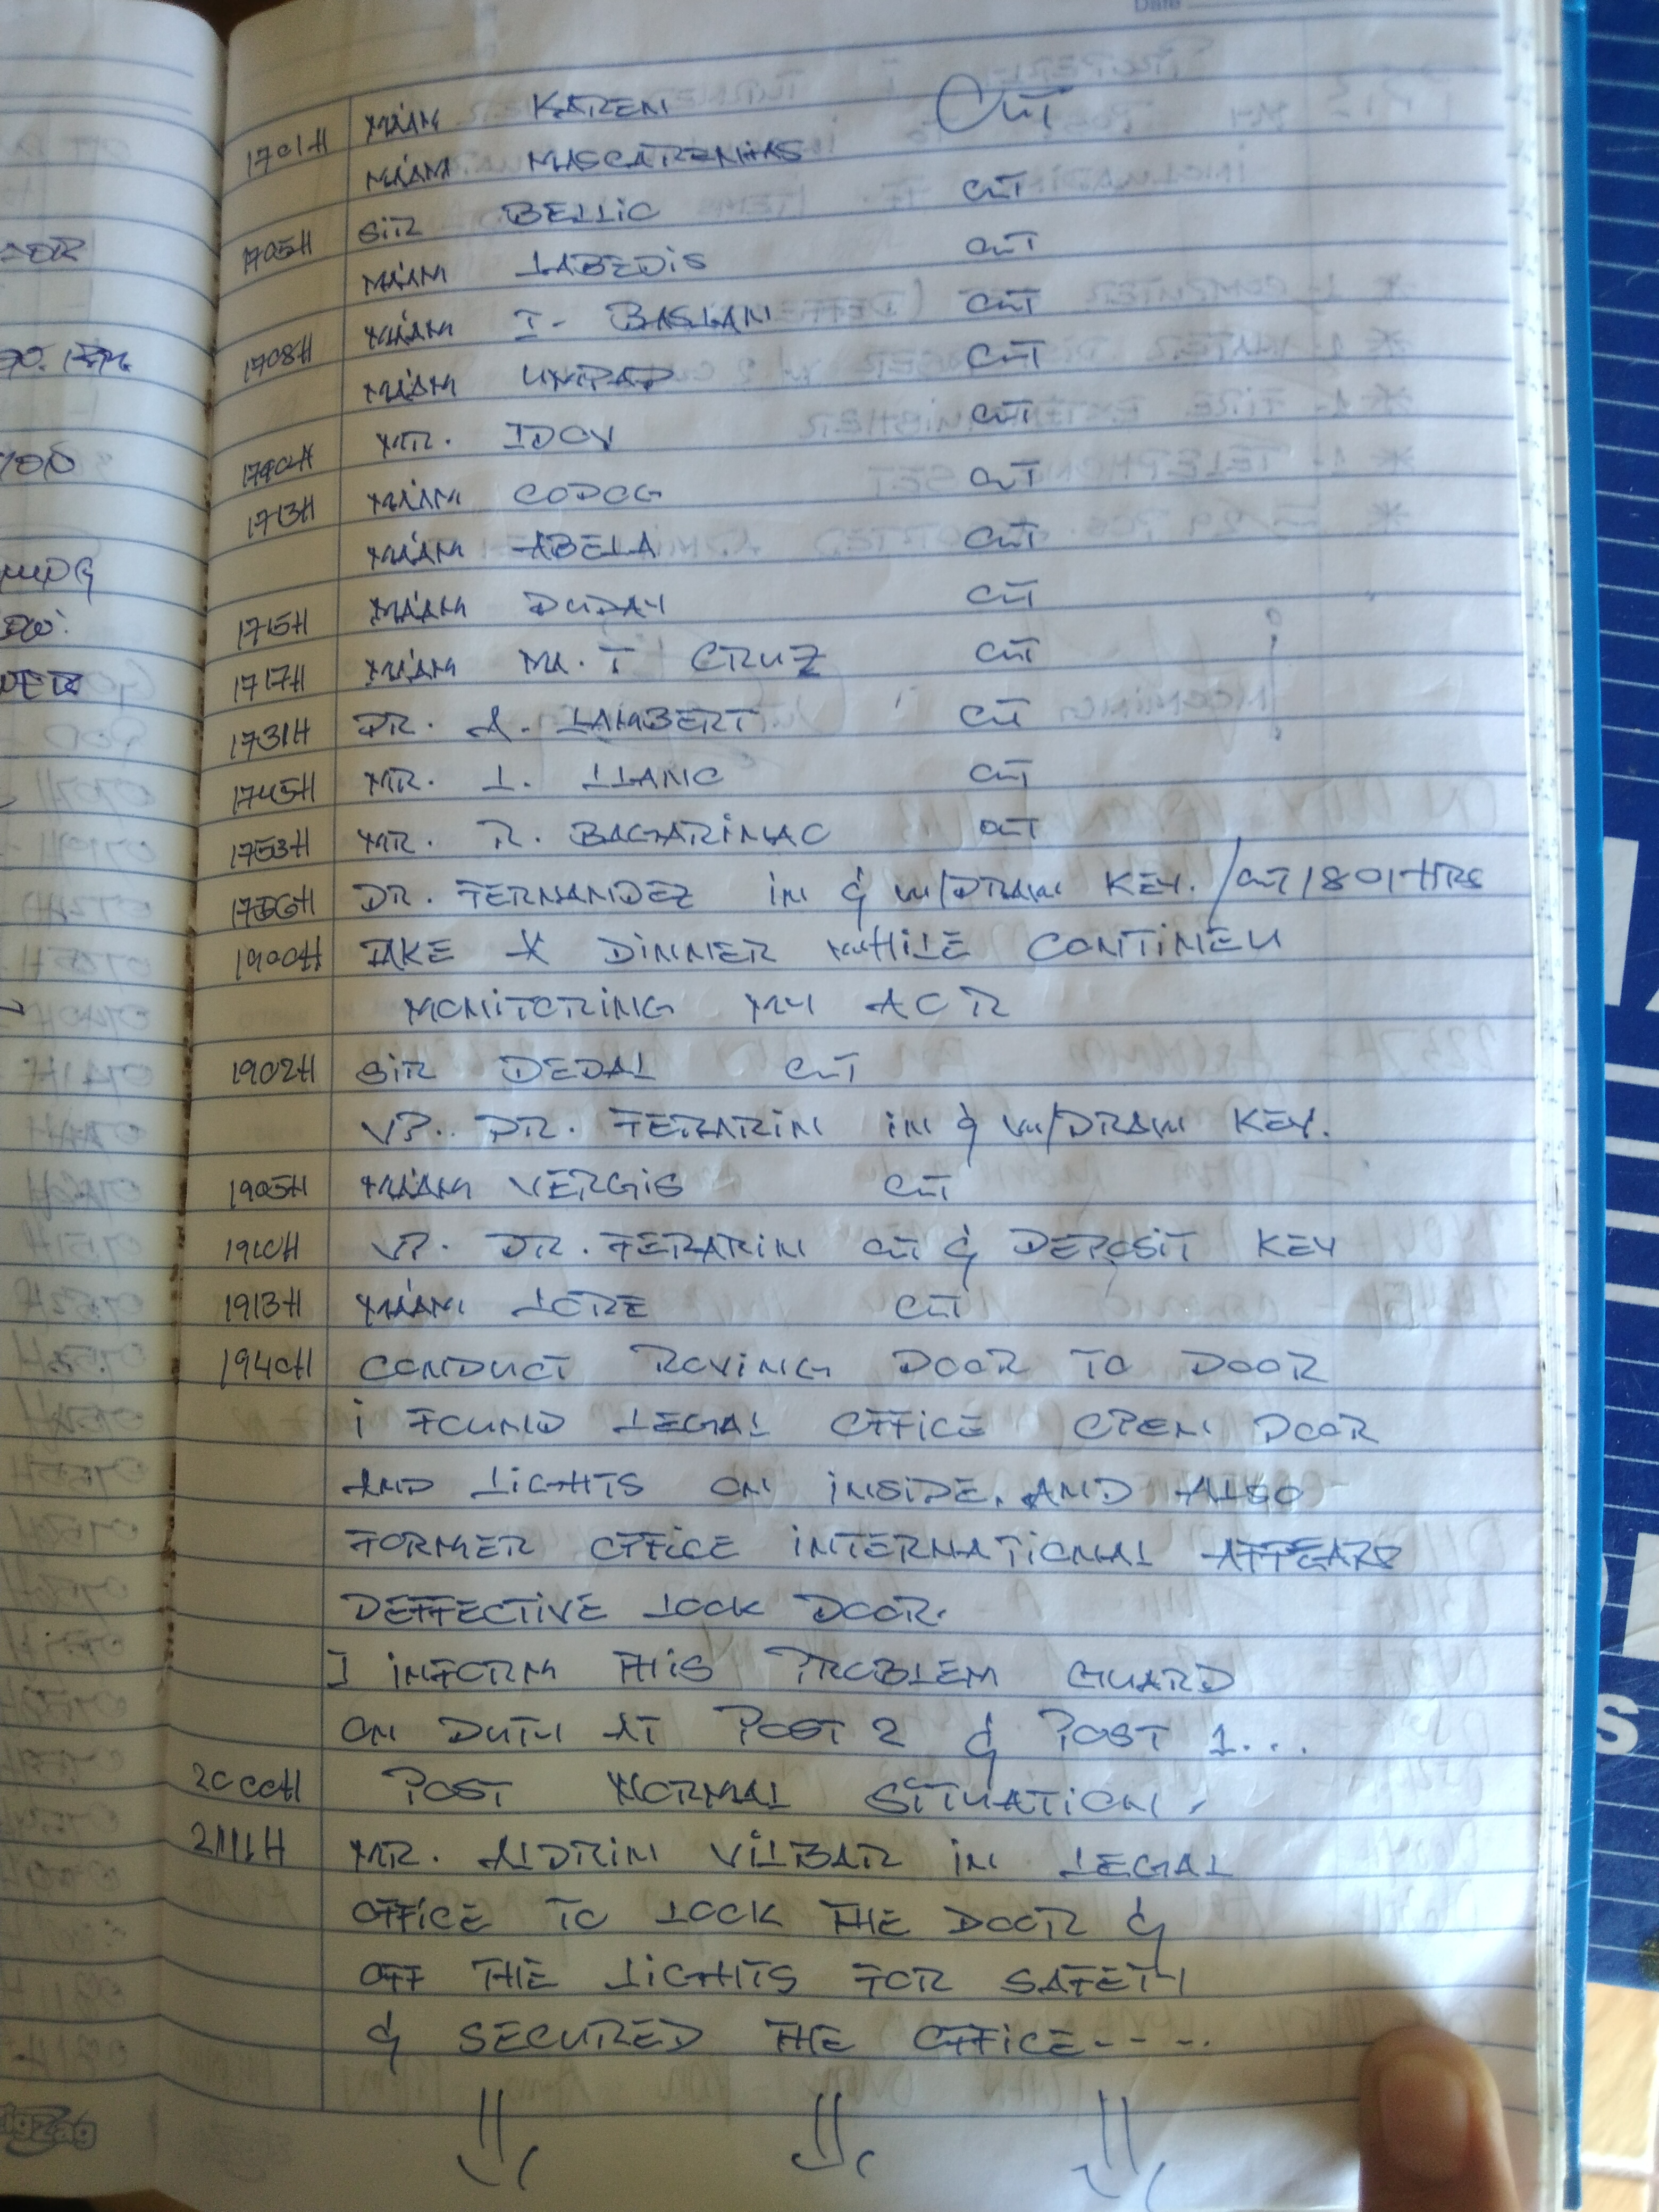 Date
1701H MA'AM KAREN OUT
MA'AM MASCARENHAS
1705H SIR BELLIC OUT
MA'AM LABEDIS OUT
1708H MA'AM I- BASLAN OUT
MA'AM OUT
MR. OUT
1713H MA'AM CODOG OUT
MA'AM ABELA OUT
1715H MA'AM DUDAY OUT
1717H MA'AM MA. T CRUZ OUT
1731H DR. A. LAMBERT OUT
1745H MR. L. LLANO OUT
1753H MR. R. BAGARINAO OUT
1756H DR. FERNANDEZ IN & W/DRAW KEY. /OUT 1801HRS
1900H TAKE A DINNER WHILE CONTINEU
MONITORING MY AOR
1902H SIR DEDAL OUT
VP.. DR. FERARIN IN & W/DRAW KEY.
1905H MA'AM VERGIS OUT
1910H VP. DR. FERARIN OUT & DEPOSIT KEY
1913H MA'AM LORE OUT
1940H CONDUCT ROVING DOOR TO DOOR
I FOUND LEGAL OFFICE OPEN DOOR
AND LIGHTS ON INSIDE. AND ALSO
FORMER OFFICE INTERNATIONAL AFFEARS
DEFFECTIVE LOCK DOOR.
I INFORM THIS PROBLEM GUARD
ON DUTY AT POST 2 & POST 1...
2000H POST NORMAL SITUATION.
2111H MR. ALDRIN VILBAR IN LEGAL
OFFICE TO LOCK THE DOOR &
OFF THE LIGHTS FOR SAFETY
& SECURED THE OFFICE-----